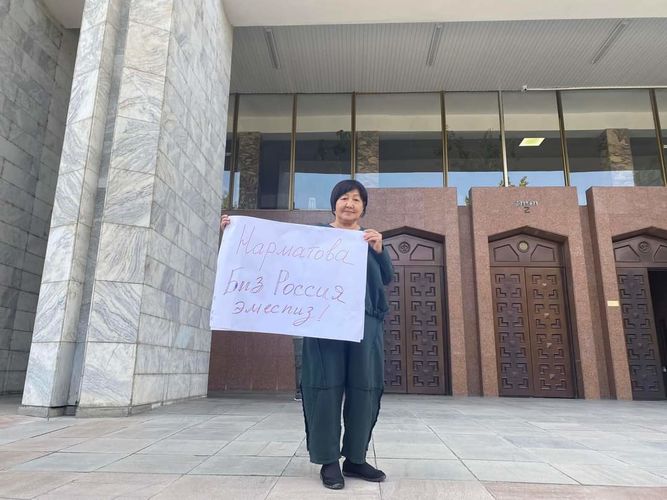 Нарматова
Биз Россия
эмеспиз!
2